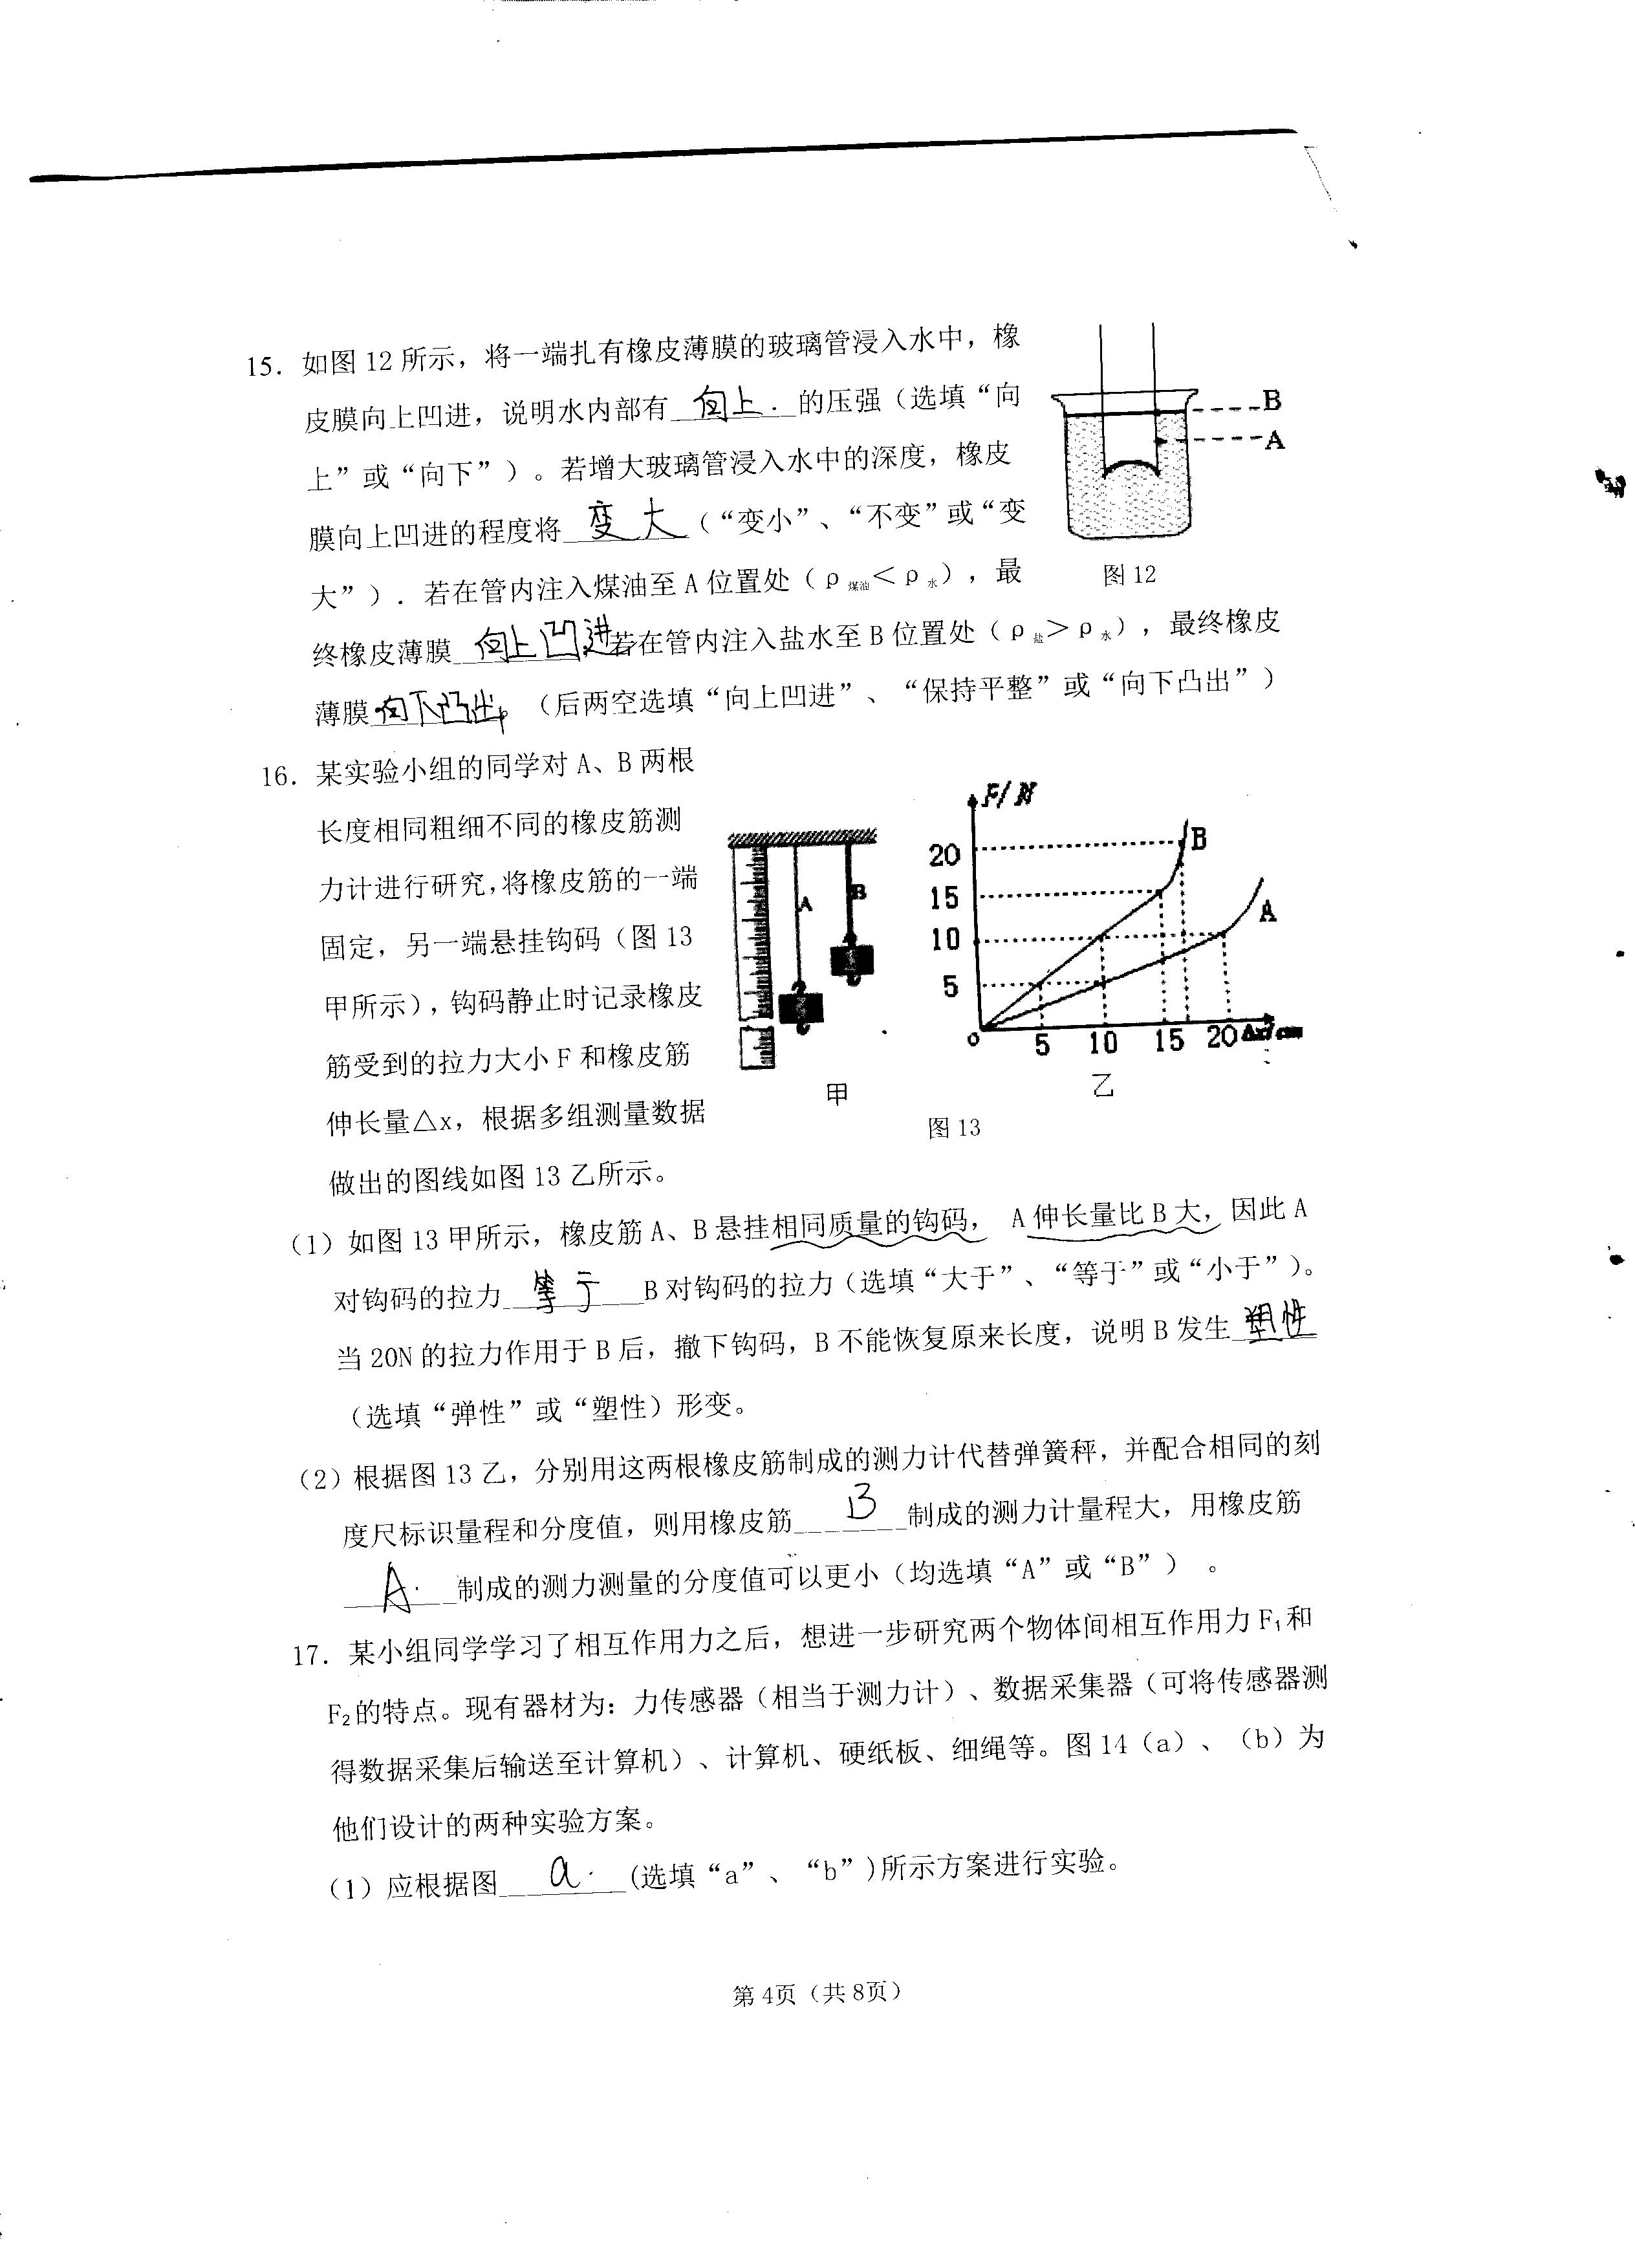 15. 如图 12 所示，将一端扎有橡皮薄膜的玻璃管浸入水中，橡
皮膜向上凹进，说明水内部有 向上. 的压强（选填“向
上”或“向下”）。若增大玻璃管浸入水中的深度，橡皮
膜向上凹进的程度将 变大（“变小”、“不变”或“变
大”）. 若在管内注入煤油至 A 位置处（ρ煤油＜ρ水），最
终橡皮薄膜 向上凹进 若在管内注入盐水至 B 位置处（ρ盐＞ρ水），最终橡皮
薄膜 向下凸出，（后两空选填“向上凹进”、“保持平整”或“向下凸出”）
B
A
图 12
16. 某实验小组的同学对 A、B 两根
长度相同粗细不同的橡皮筋测
力计进行研究，将橡皮筋的一端
固定，另一端悬挂钩码（图 13
甲所示），钩码静止时记录橡皮
筋受到的拉力大小 F 和橡皮筋
伸长量△x，根据多组测量数据
做出的图线如图 13 乙所示。
A B
甲
F/N
20
15
10
5
0 5 10 15 20 Δx/cm
B
A
乙
图 13
（1）如图 13 甲所示，橡皮筋 A、B 悬挂相同质量的钩码， A 伸长量比 B 大，因此 A
对钩码的拉力 等于 B 对钩码的拉力（选填“大于”、“等于”或“小于”）。
当 20N 的拉力作用于 B 后，撤下钩码，B 不能恢复原来长度，说明 B 发生 塑性
（选填“弹性”或“塑性）形变。
（2）根据图 13 乙，分别用这两根橡皮筋制成的测力计代替弹簧秤，并配合相同的刻
度尺标识量程和分度值，则用橡皮筋 B 制成的测力计量程大，用橡皮筋
A. 制成的测力测量的分度值可以更小（均选填“A”或“B”） 。
17. 某小组同学学习了相互作用力之后，想进一步研究两个物体间相互作用力 F₁和
F₂的特点。现有器材为：力传感器（相当于测力计）、数据采集器（可将传感器测
得数据采集后输送至计算机）、计算机、硬纸板、细绳等。图 14（a）、（b）为
他们设计的两种实验方案。
（1）应根据图 a. (选填“a”、“b”)所示方案进行实验。
第 4页（共 8页）